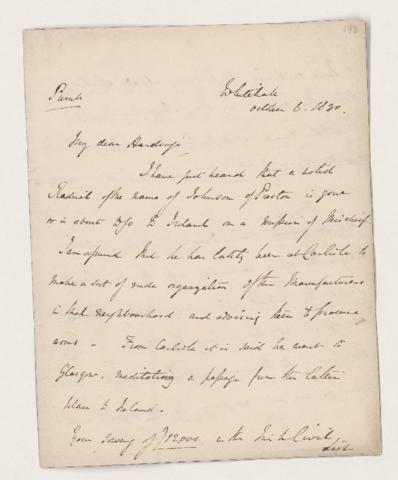 198
Whitehall
October 6. 1830.
Private
My dear Hardinge,
I have just heard that a noted
Radical of the name of Johnson of Preston is gone
or is about to go to Ireland on a mission of mischief.
I am assured that he has lately been at Carlisle to
make a sort of rude organization of the Manufacturers
in that neighbourhood and advising them to procure
arms - From Carlisle it is said he went to
Glasgow, meditating a passage from the latter
place to Ireland.
Your saving of £12000 in the Irish Civil
List